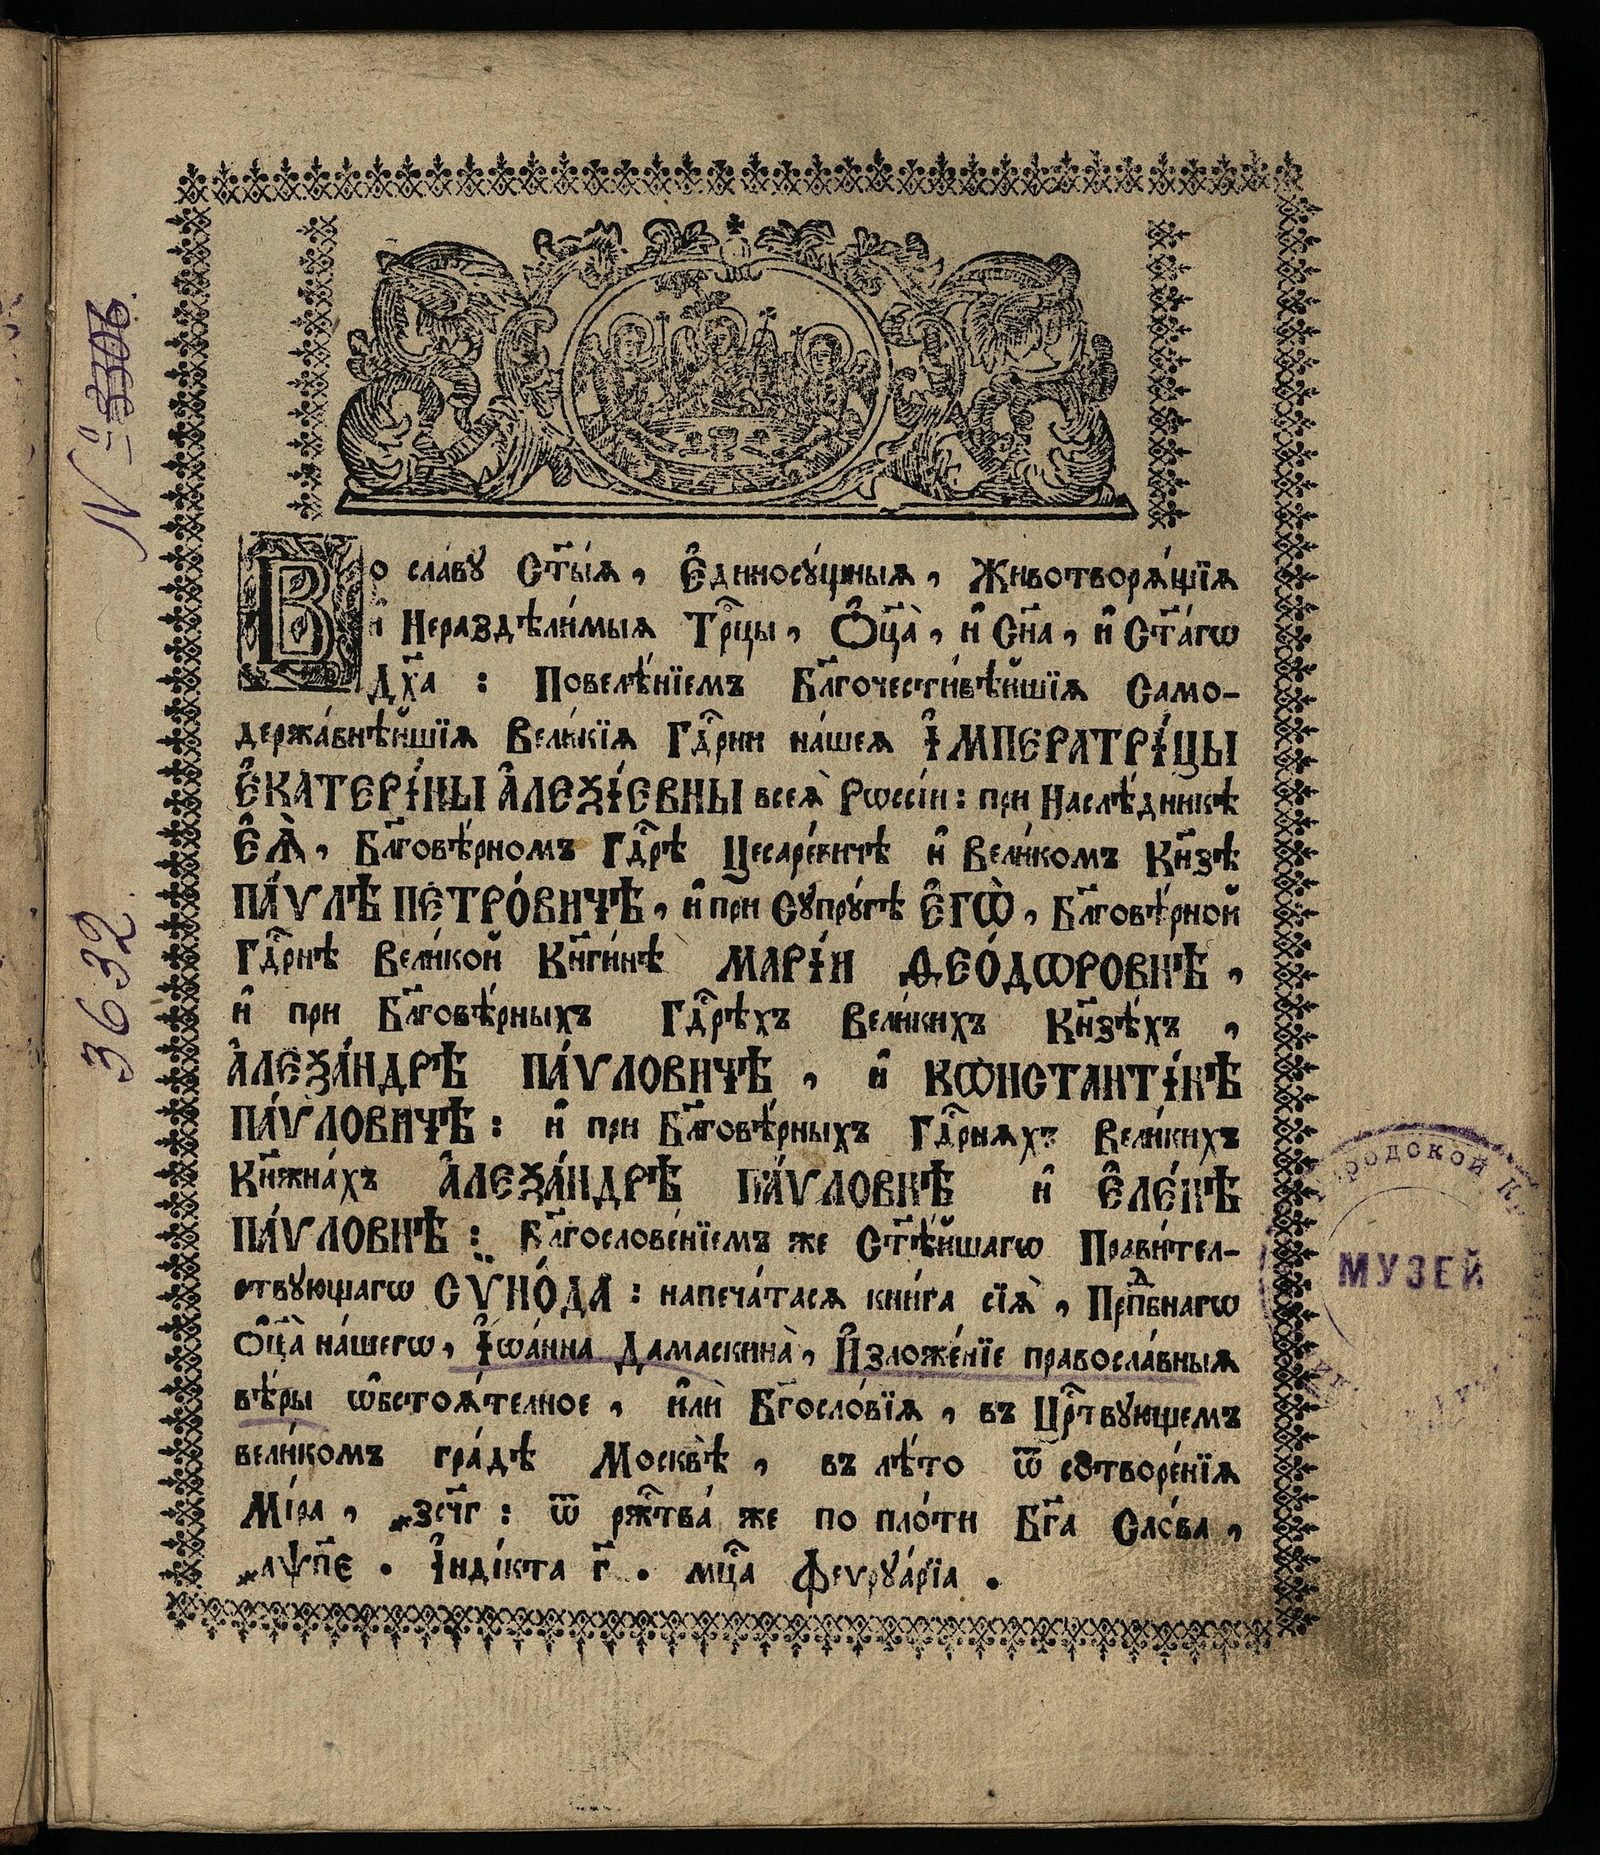 Во сла́вꙋ Ст҃ы́ѧ, Є҆диносꙋ́щныѧ, Животворѧ́щїѧ
и҆ Нераздѣли́мыѧ Трⷪ҇цы, Ѻ҆ц҃а̀, и҆ Сн҃а, и҆ Ст҃а́гѡ
Дх҃а : Повелѣ́нїемъ Бл҃гочести́вѣйшїѧ Само-
держа́внѣйшїѧ Вели́кїѧ Гдⷭ҇рни на́шеѧ І҆МПЕРАТРІ́ЦЫ
Є҆КАТЕРІ́НЫ А҆ЛЕѮІ́ЕВНЫ всеѧ̀ Рѡссі́и : при Наслѣ́дникѣ
Є҆Ѧ̀, Бл҃говѣ́рномъ Гдⷭ҇рѣ Цесаре́вичѣ и҆ Вели́комъ Кн҃зѣ
ПА́ѴЛѢ ПЕТРО́ВИЧѢ, и҆ при Сꙋпрꙋ́гѣ Є҆ГѠ̀, Бл҃говѣ́рной
Гдⷭ҇рнѣ Вели́кой Кн҃ги́нѣ МАРІ́И ѲЕО́ДѠРОВНѢ,
и҆ при Бл҃говѣ́рныхъ Гдⷭ҇рѣхъ Вели́кихъ Кн҃зѣ́хъ,
А҆ЛЕѮА́НДРѢ ПА́ѴЛОВИЧѢ, и҆ КѠНСТАНТІ́НѢ
ПА́ѴЛОВИЧѢ : и҆ при Бл҃говѣ́рныхъ Гдⷭ҇рнѧхъ Вели́кихъ
Кн҃жна́хъ А҆ЛЕѮА́НДРѢ ПА́ѴЛОВНѢ и҆ Є҆ЛЕ́НѢ
ПА́ѴЛОВНѢ : Бл҃гослове́нїемъ же Ст҃ѣ́йшагѡ Прави́тел-
ствꙋющагѡ СѴНО́ДА : напеча́тасѧ кни́га сїѧ̀, Прпⷣбнагѡ
Ѻ҆ц҃а̀ на́шегѡ, І҆ѡа́нна Дамаскина̀, И҆зложе́нїе правосла́вныѧ
вѣ́ры ѡ҆бстоѧ́телное, и҆лѝ Бг҃осло́вїѧ, въ Црⷭ҇твꙋющемъ
вели́комъ гра́дѣ Москвѣ̀, въ лѣ́то ѿ сотворе́нїѧ
Мі́ра, ҂зсч҃г : ѿ ржⷭ҇тва́ же по пло́ти Бг҃а Сло́ва,
҂аѱп҃є . І҆нді́кта г҃ . мцⷭ҇а Феѵрꙋа́рїа .
№ 3306.
3632
МУЗЕЙ